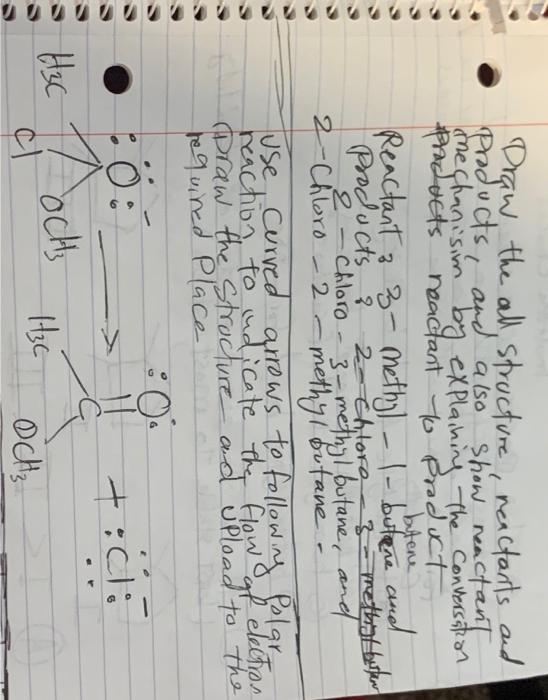 Draw the all structure, reactants and
products, and also show reactant
mechanisim by explaining the conversation
products reactant to product
Reactant : 3 - methyl - 1 - butene and
butene
Products : 2 - chloro - 3 - methyl buten
2 - chloro - 3 - methyl butane, and
2 - chloro - 2 - methyl butane -
use curved arrows to following Polar
reaction to indicate the flow of election
(Draw the structure and upload to the
required Place
:O: -
H3C
Cl
OCH3
:O:
H3C
C
OCH3
+ :Cl: -